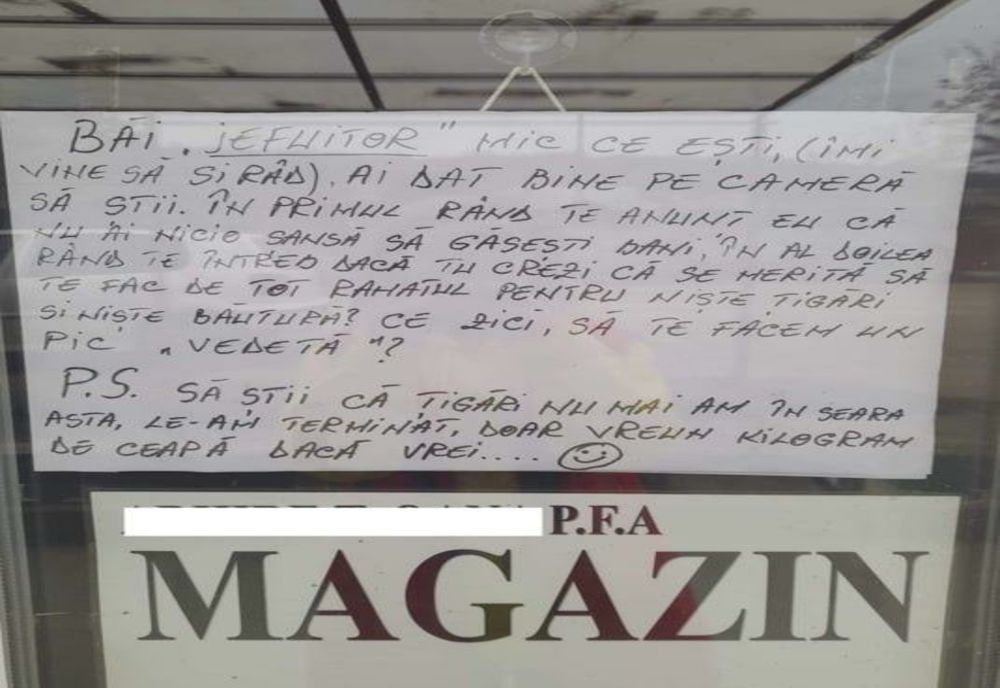 BĂi „jEFUiTOR" MIC CE EȘTI, (ÎMI
VINE SĂ SI RÂD). AI DAT BINE PE CAMERĂ
SĂ STII. ÎN PRIMUL RÂND TE ANUNT EU CĂ
NU AI NICIO SANSĂ SĂ GĂSEȘTI BANI, ÎN AL DOILEA
RÂND TE ÎNTREB DACĂ TU CREZI CĂ SE MERITĂ SĂ
TE FAC DE TOT RAHATUL PENTRU NIȘTE ȚIGĂRI
SI NIȘTE BĂUTURĂ? CE ZICI, SĂ TE FACEM UN
PIC „VEDETĂ"?
P.S. SĂ ȘTII CĂ ȚIGĂRI NU MAI AM ÎN SEARA
ASTA, LE-AM TERMINAT, DOAR VREUN KILOGRAM
DE CEAPĂ DACĂ VREI....
P.F.A
MAGAZIN